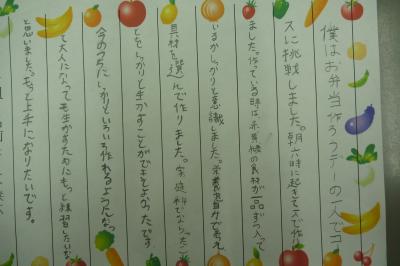 僕はお弁当作ろうデーの一人でコ
スに挑戦しました。朝六時に起きて一人で作り
ました。作っている時は、赤黄緑の食材が一品ずつ入って
いるかしっかりと意識しました。栄養を自分で考え、
具材を選んで作りました。家庭科でならったこ
とをしっかりと生かすことができてよかったです
今のうちにしっかりといろいろ作れるようになっ
て大人になっても生かすためにもっと練習したいな
と思いました。もっと上手になりたいです。